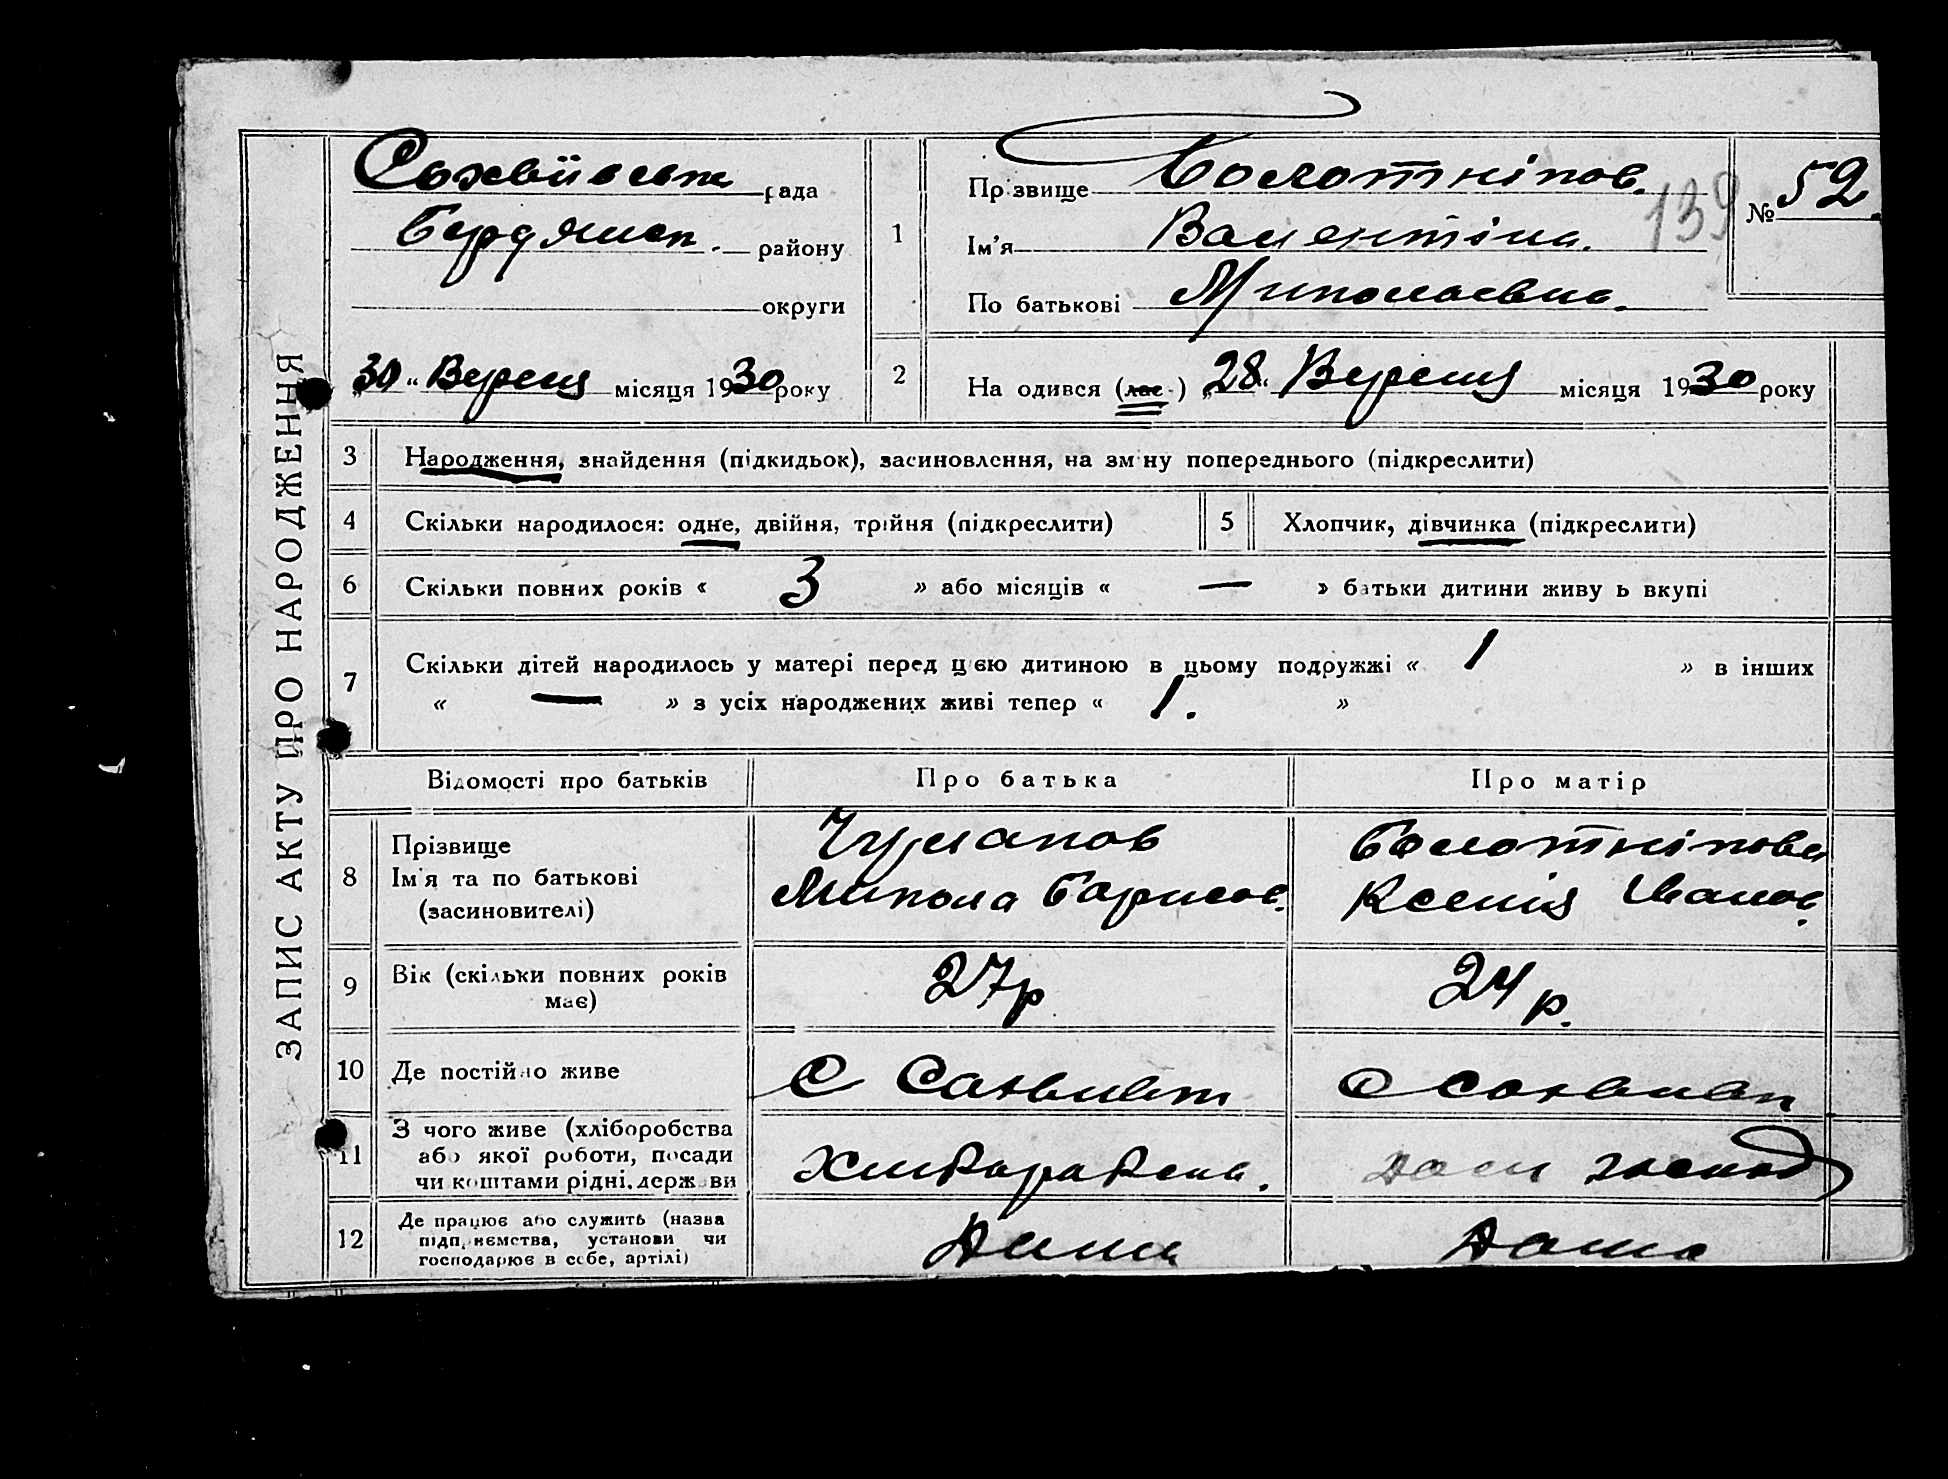 ЗАПИС АКТУ ПРО НАРОДЖЕННЯ
рада
Бердянск. району
округи
„30“ Вересня місяця 1930 року
1
Прізвище Болотніков.
Ім'я Валентіна.
По батькові Миколаєвна.
139
№ 52.
2
На одився (лас-) „28“ Вересня місяця 1930 року
3
Народження, знайдення (підкидьок), засиновлення, на зміну попереднього (підкреслити)
4
Скільки народилося: одне, двійня, трійня (підкреслити)
5
Хлопчик, дівчинка (підкреслити)
6
Скільки повних років « 3 » або місяців « — » батьки дитини живу ь вкупі
7
Скільки дітей народилось у матері перед цією дитиною в цьому подружжі « 1 » в інших
« — » з усіх народжених живі тепер « 1. »
Відомості про батьків
Про батька
Про матір
8
Прізвище
Ім'я та по батькові
(засиновителі)
Чумаков
Микола Борисов.
Болотнікова
Ксенія Іванов.
9
Вік (скільки повних років
має)
27р
24р.
10
Де постійно живе
С
С
11
З чого живе (хліборобства
або якої роботи, посади
чи коштами рідні, держави
дом господ
12
Де працює або служить (назва
підприємства, установи чи
господарює в себе, артілі)
Дома
Дома